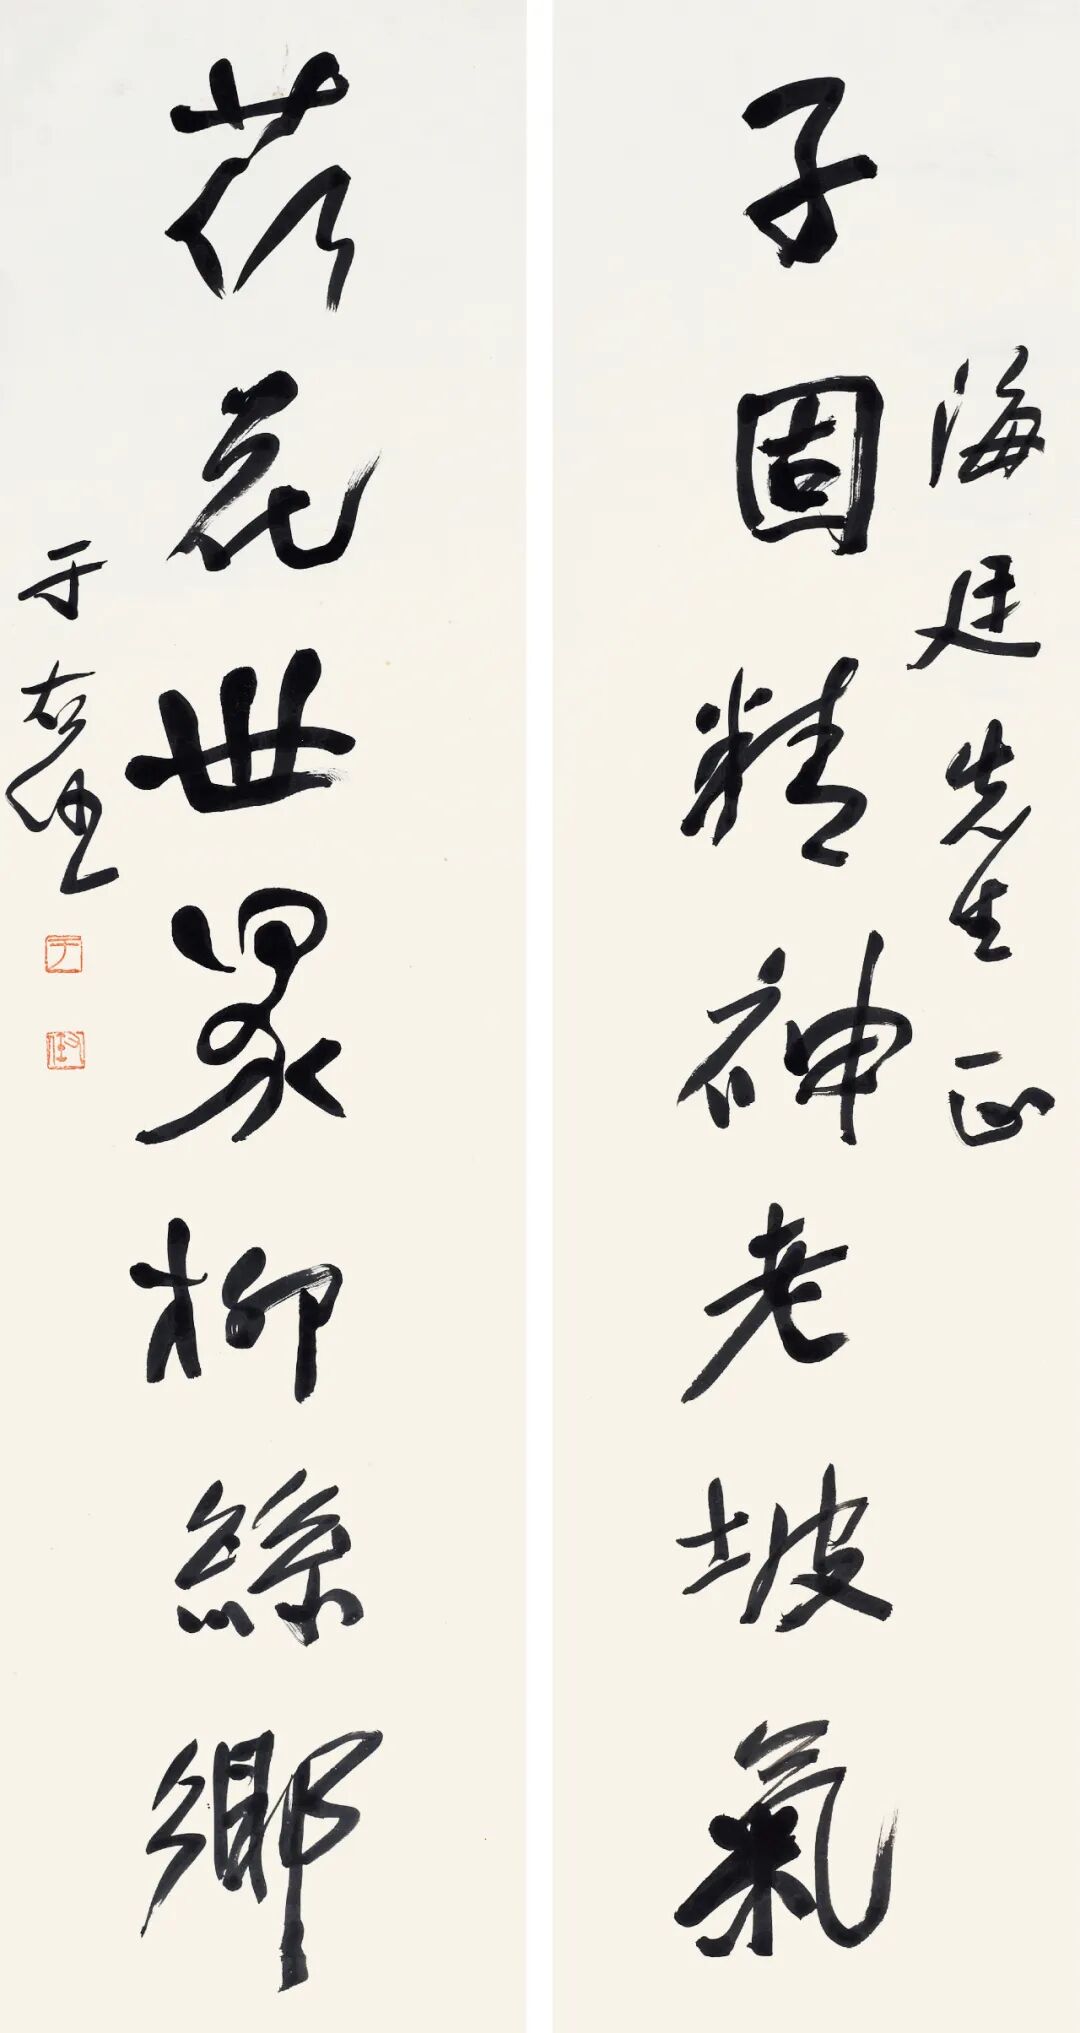 海廷先生正
子固精神老坡氣
荻花世界柳絲鄉
于右任
于
右任